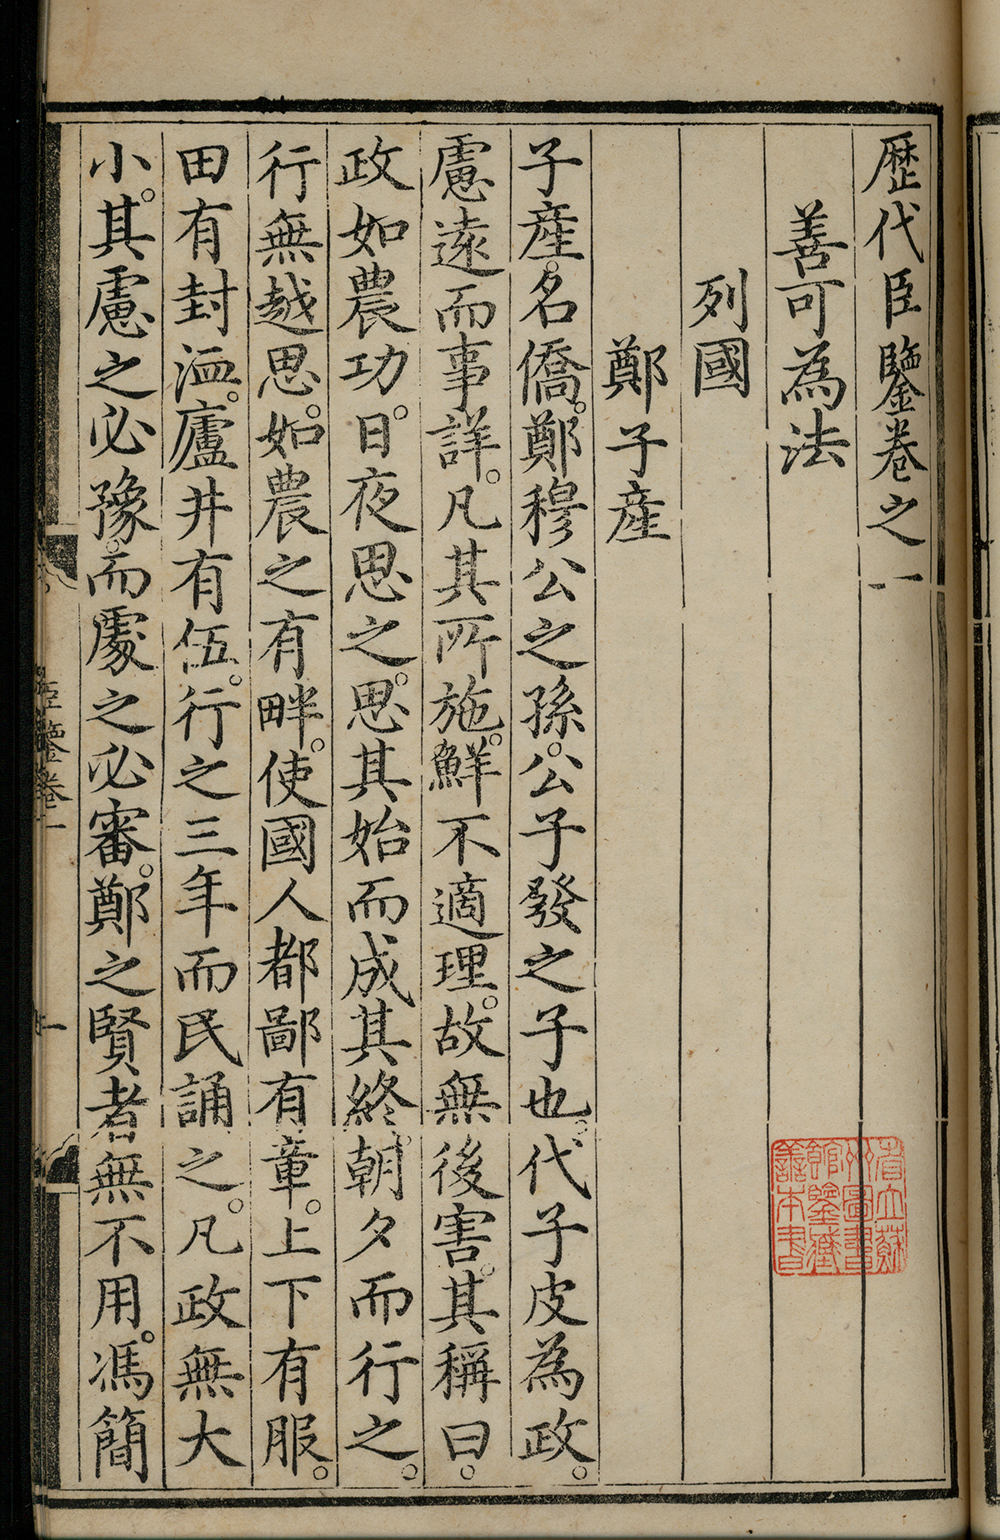 歷代臣鑒卷之一
善可為法
列國
鄭子產
子產。名僑。鄭穆公之孫。公子發之子也。代子皮為政。
慮遠而事詳。凡其所施。鮮不適理。故無後害。其稱曰。
政如農功。日夜思之。思其始而成其終。朝夕而行之。
行無越思。如農之有畔。使國人都鄙有章。上下有服。
田有封洫。廬井有伍。行之三年而民誦之。凡政無大
小。其慮之必豫。而處之必審。鄭之賢者無不用。馮簡
臣鑒卷一
一
省立蘇
州圖書
館鑒藏
善本書